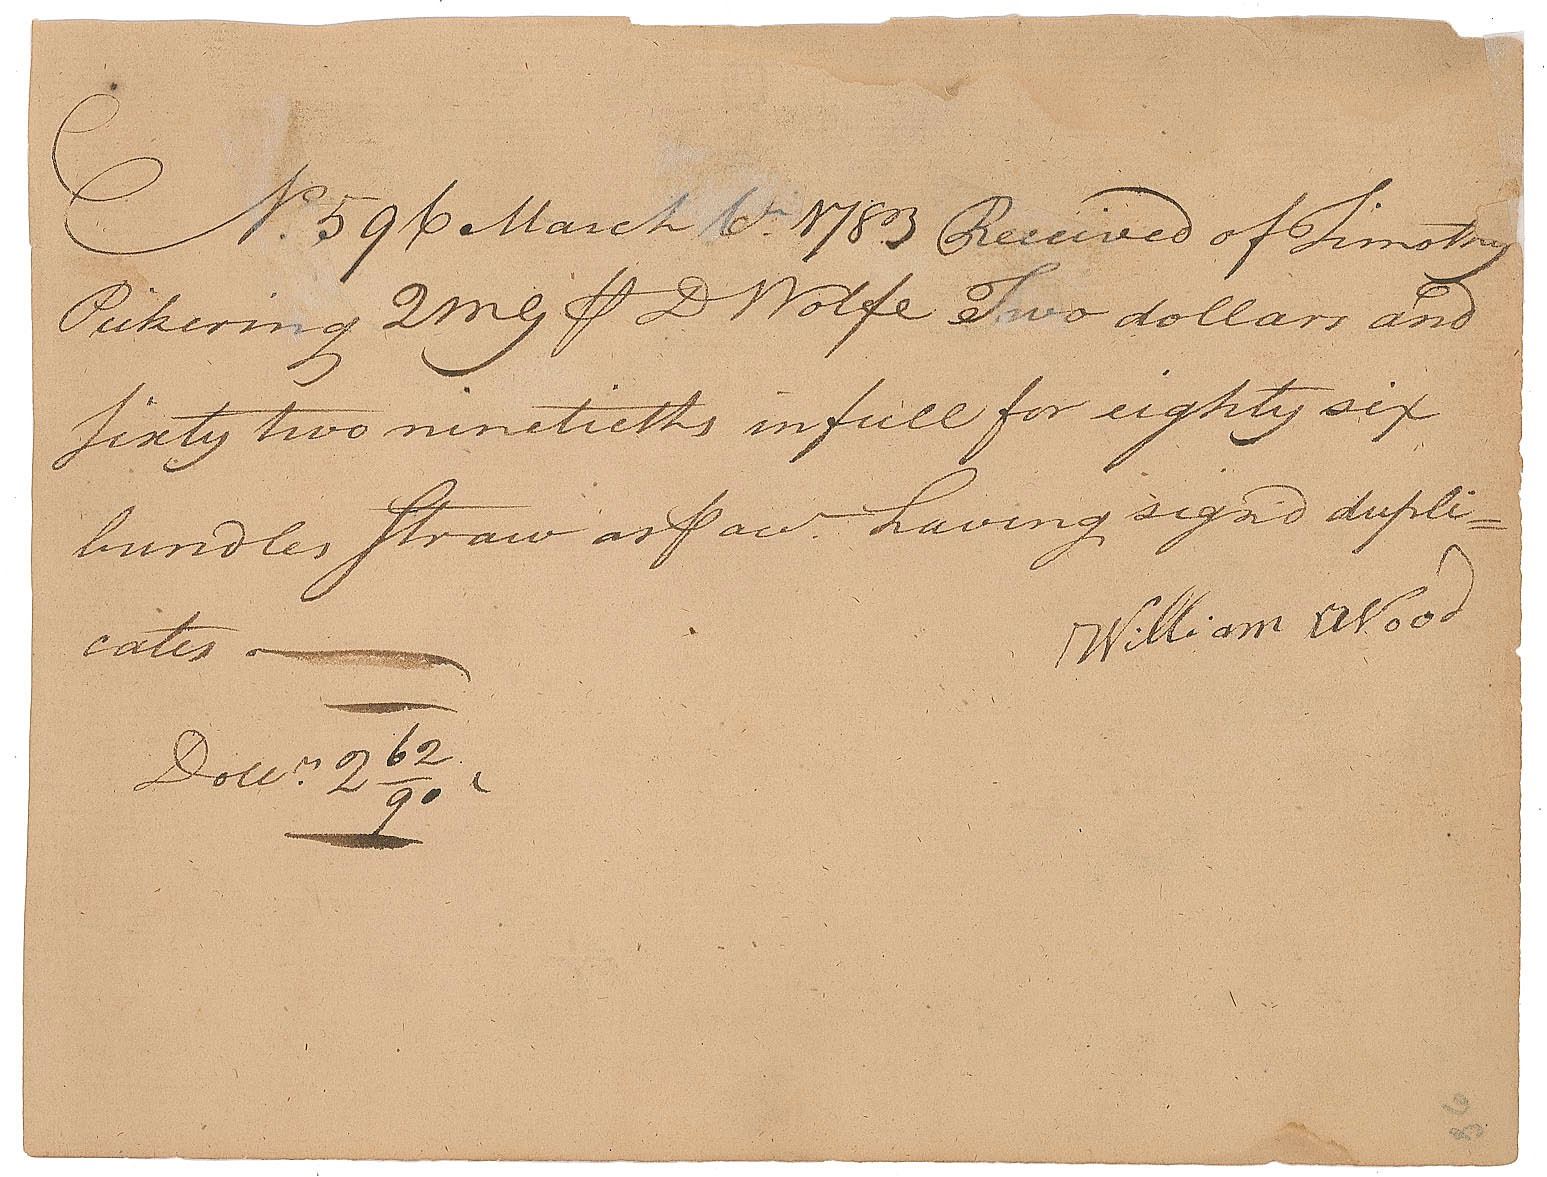 No. 596 March 6th. 1783 Received of Timothy
Pickering 2mg ⅌ D Wolfe Two dollars and
sixty two ninetieths in full for eighty six
bundles Straw as ⅌ acct. having sign'd dupli=
cates
William Wood
Dollrs. 2 62/90
36